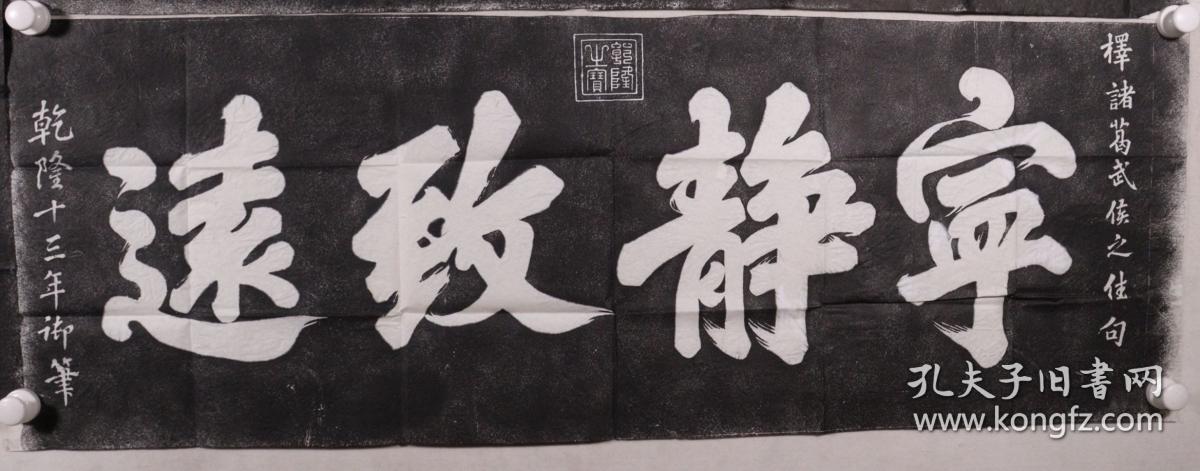 擇諸葛武侯之佳句
寧静致遠
乾隆之寶
乾隆十三年御筆
孔夫子旧書网
www.kongfz.com